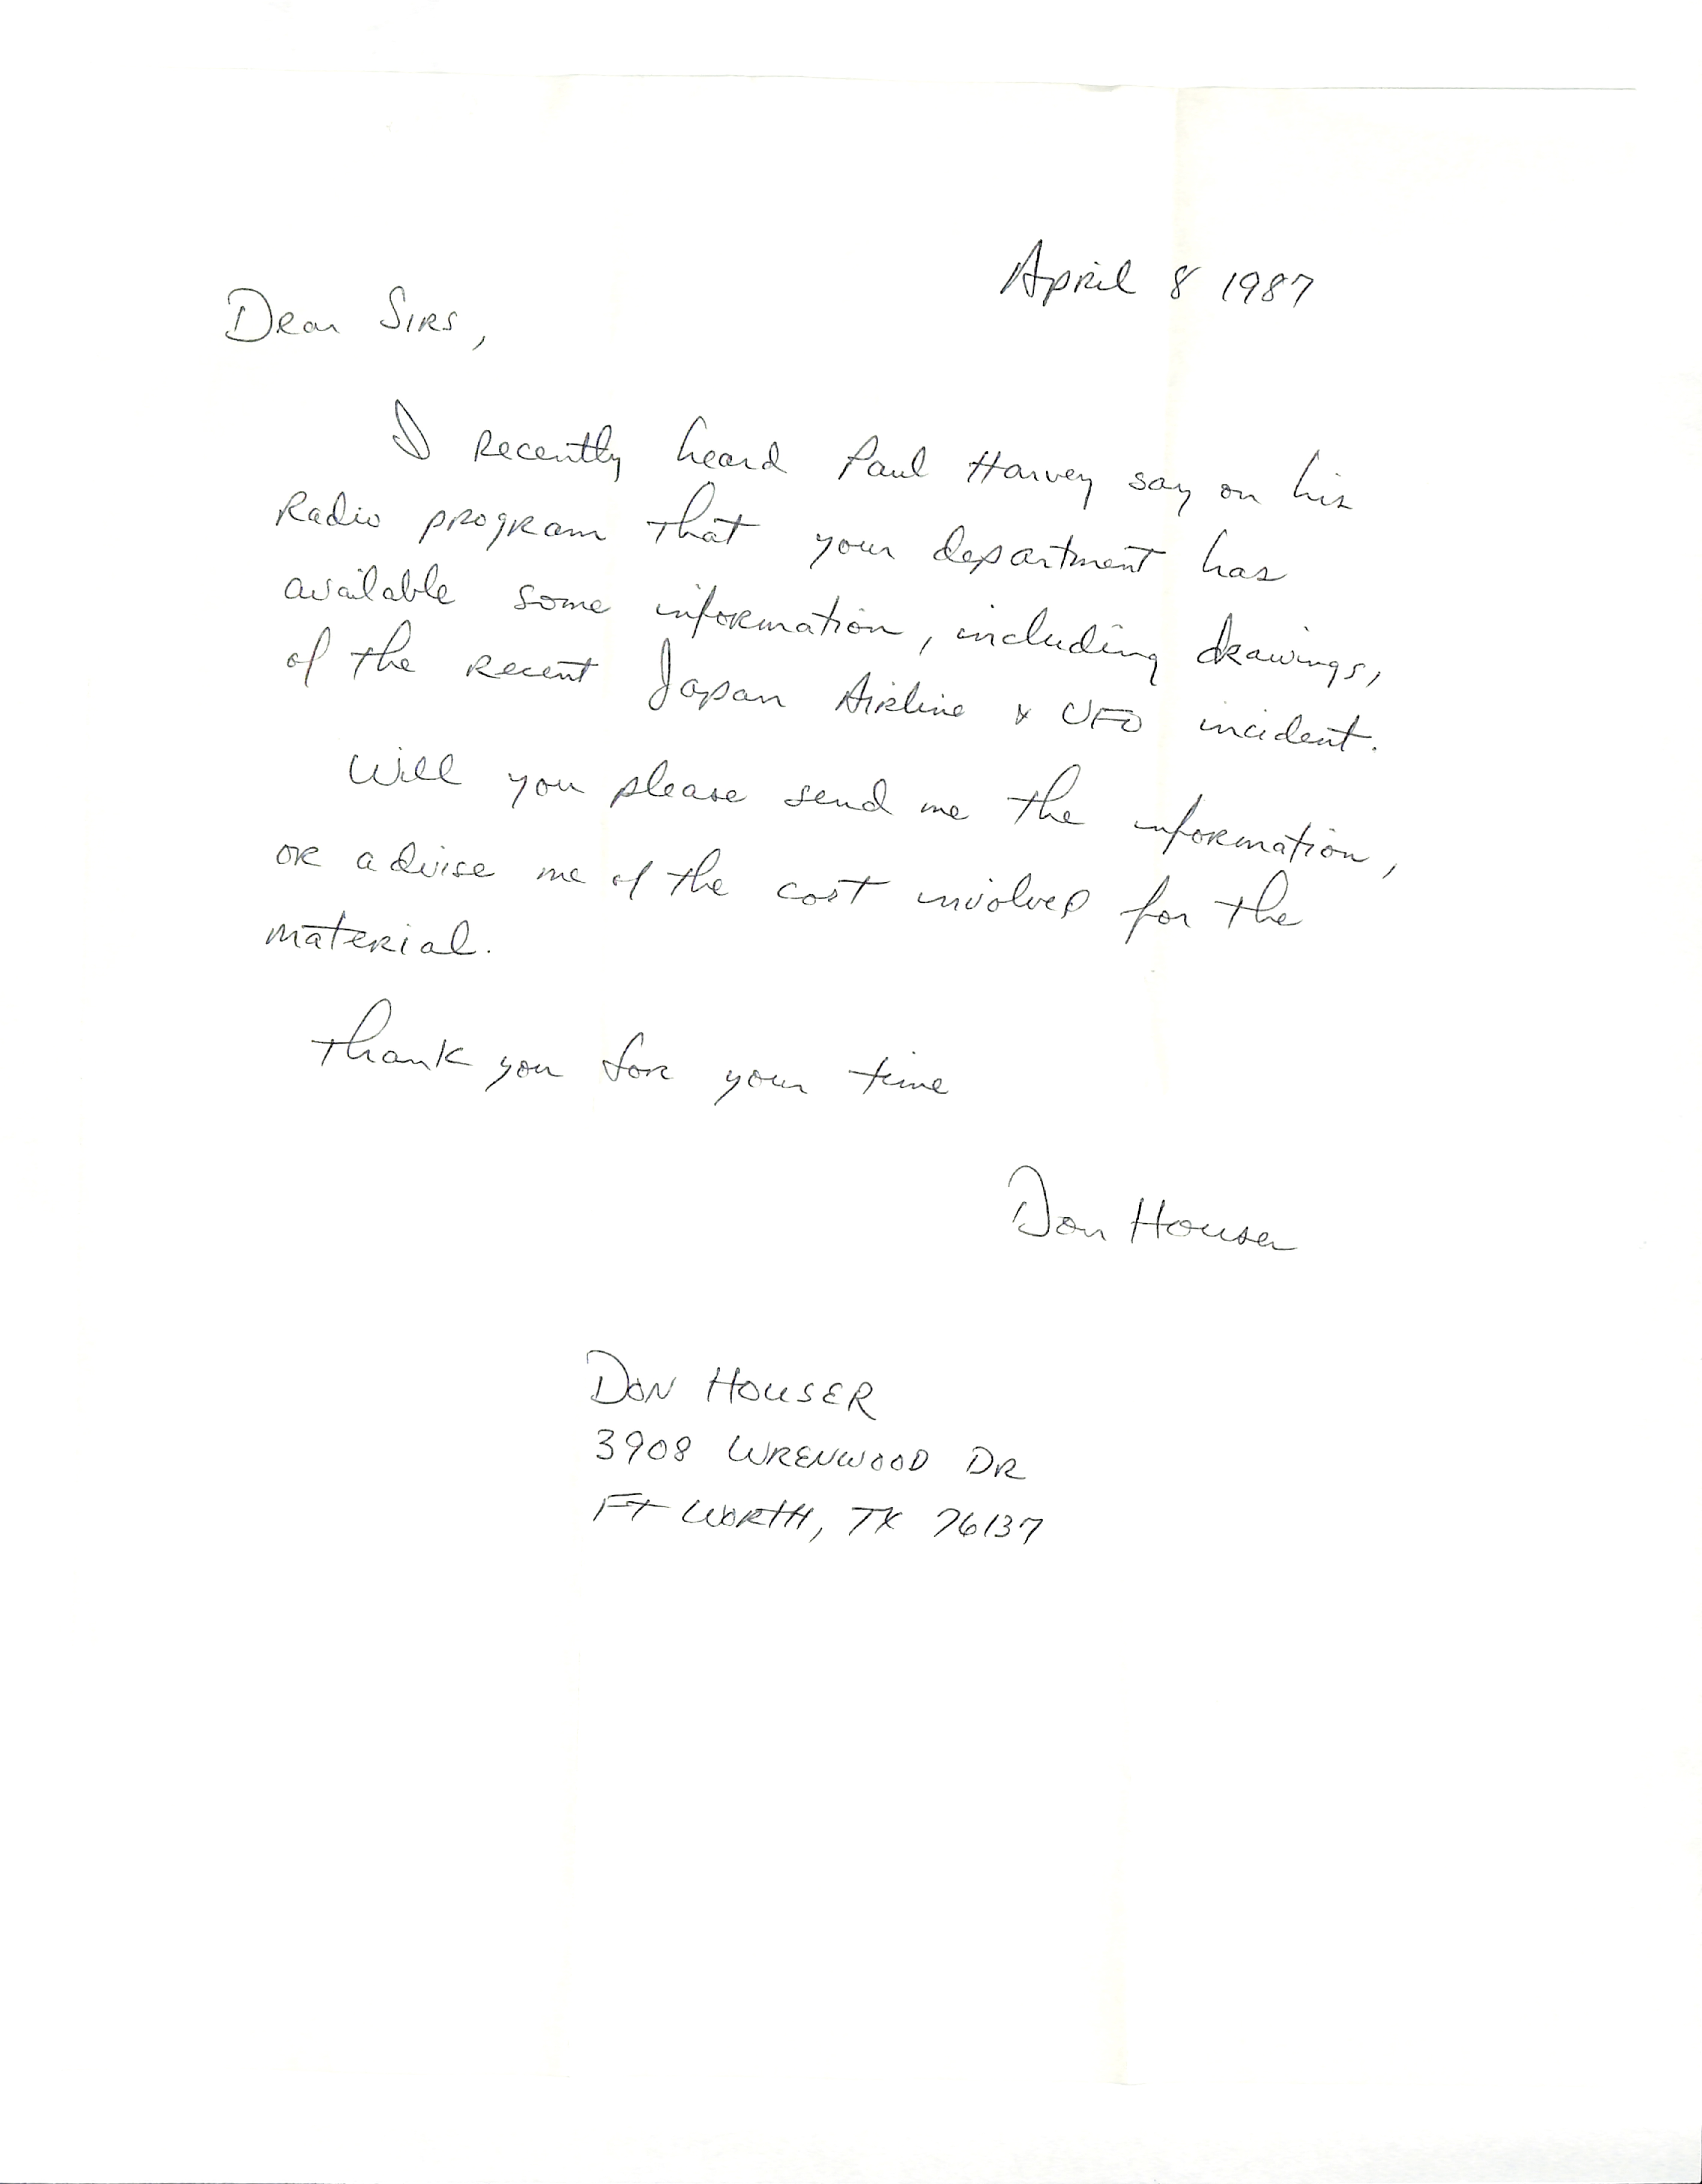 April 8 1987
Dear Sirs,
I recently heard Paul Harvey say on his
Radio program that your department has
available some information, including drawings,
of the recent Japan Airline & UFO incident.
Will you please send me the information,
or advise me of the cost involved for the
material.
Thank you for your time
Don Houser
DON HOUSER
3908 WRENWOOD DR
FT WORTH, TX 76137